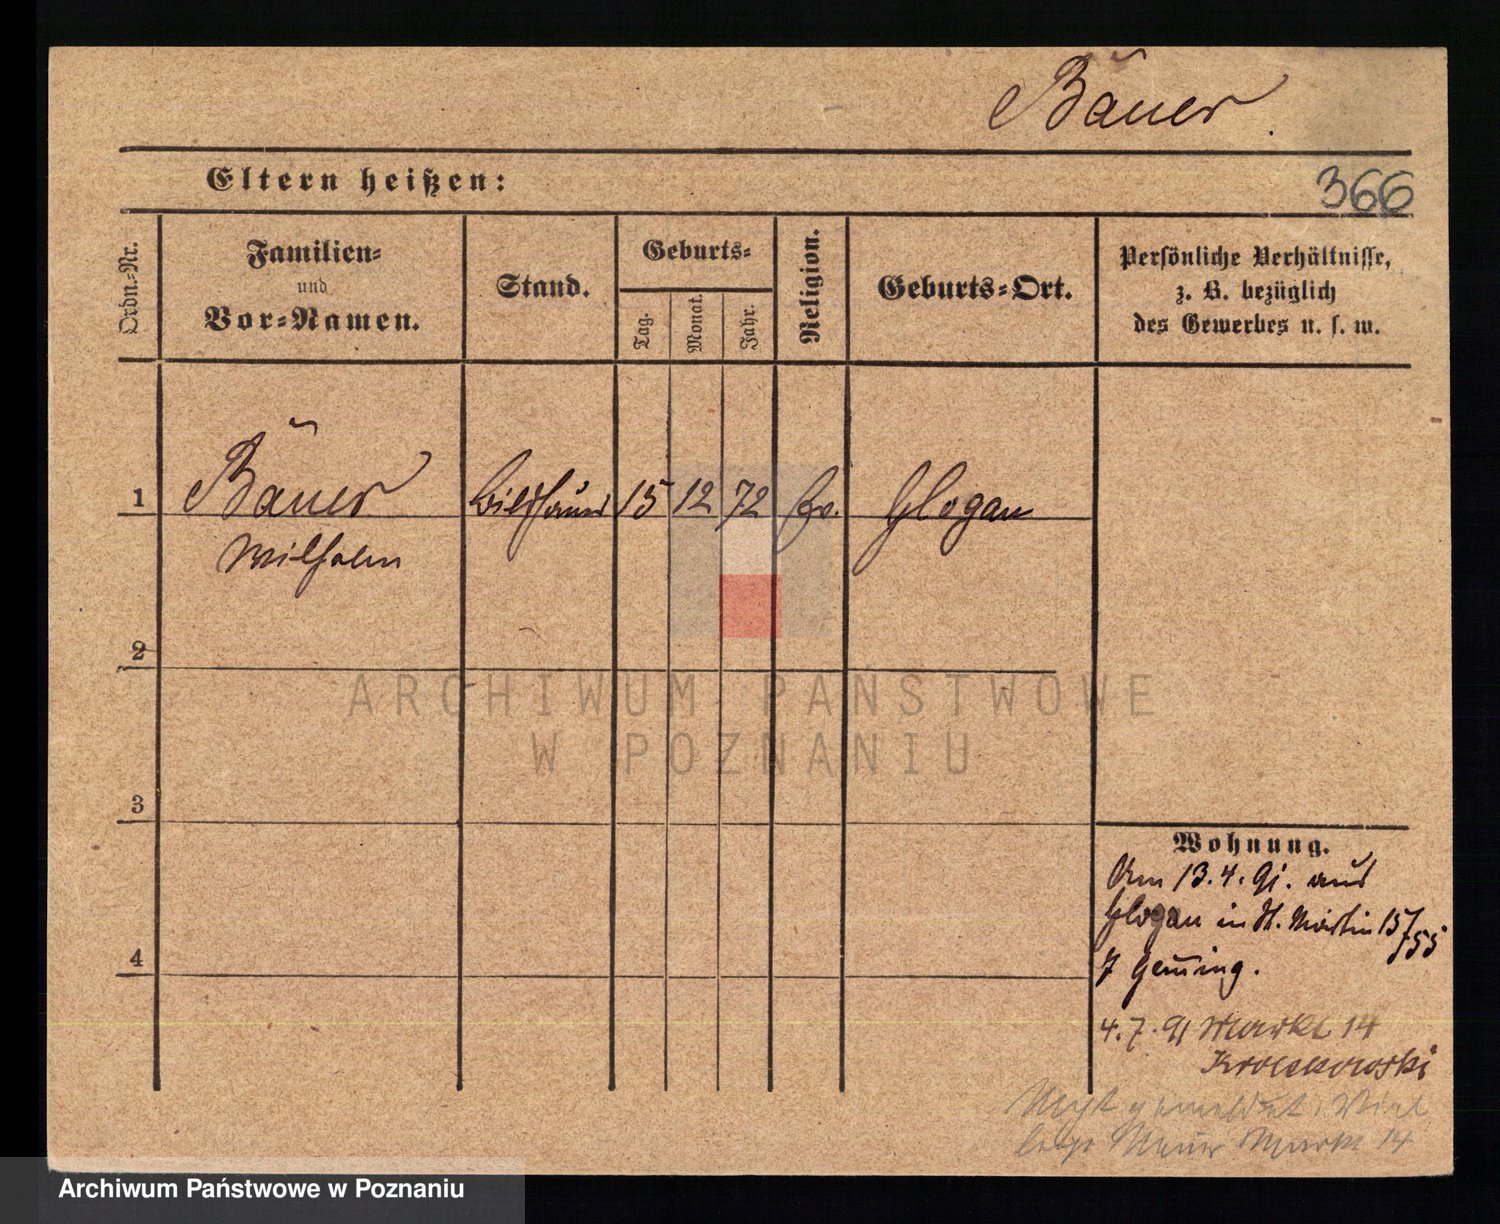 Bauer
Eltern heißen:
366
Ordn.-Nr.
Familien-
und
Vor-Namen.
Stand.
Geburts-
Tag.
Monat.
Jahr.
Religion.
Geburts-Ort.
Persönliche Verhältnisse,
z. B. bezüglich
des Gewerbes u. s. w.
1
Bauer
Wilhelm
Bildhauer
15
12
72
Ev.
Glogau
2
3
4
Wohnung.
Am 13.4.91. aus
Glogau in St. Martin 15/
755
4.7.91 Markt 14
ARCHIWUM PAŃSTWOWE
W POZNANIU
Archiwum Państwowe w Poznaniu